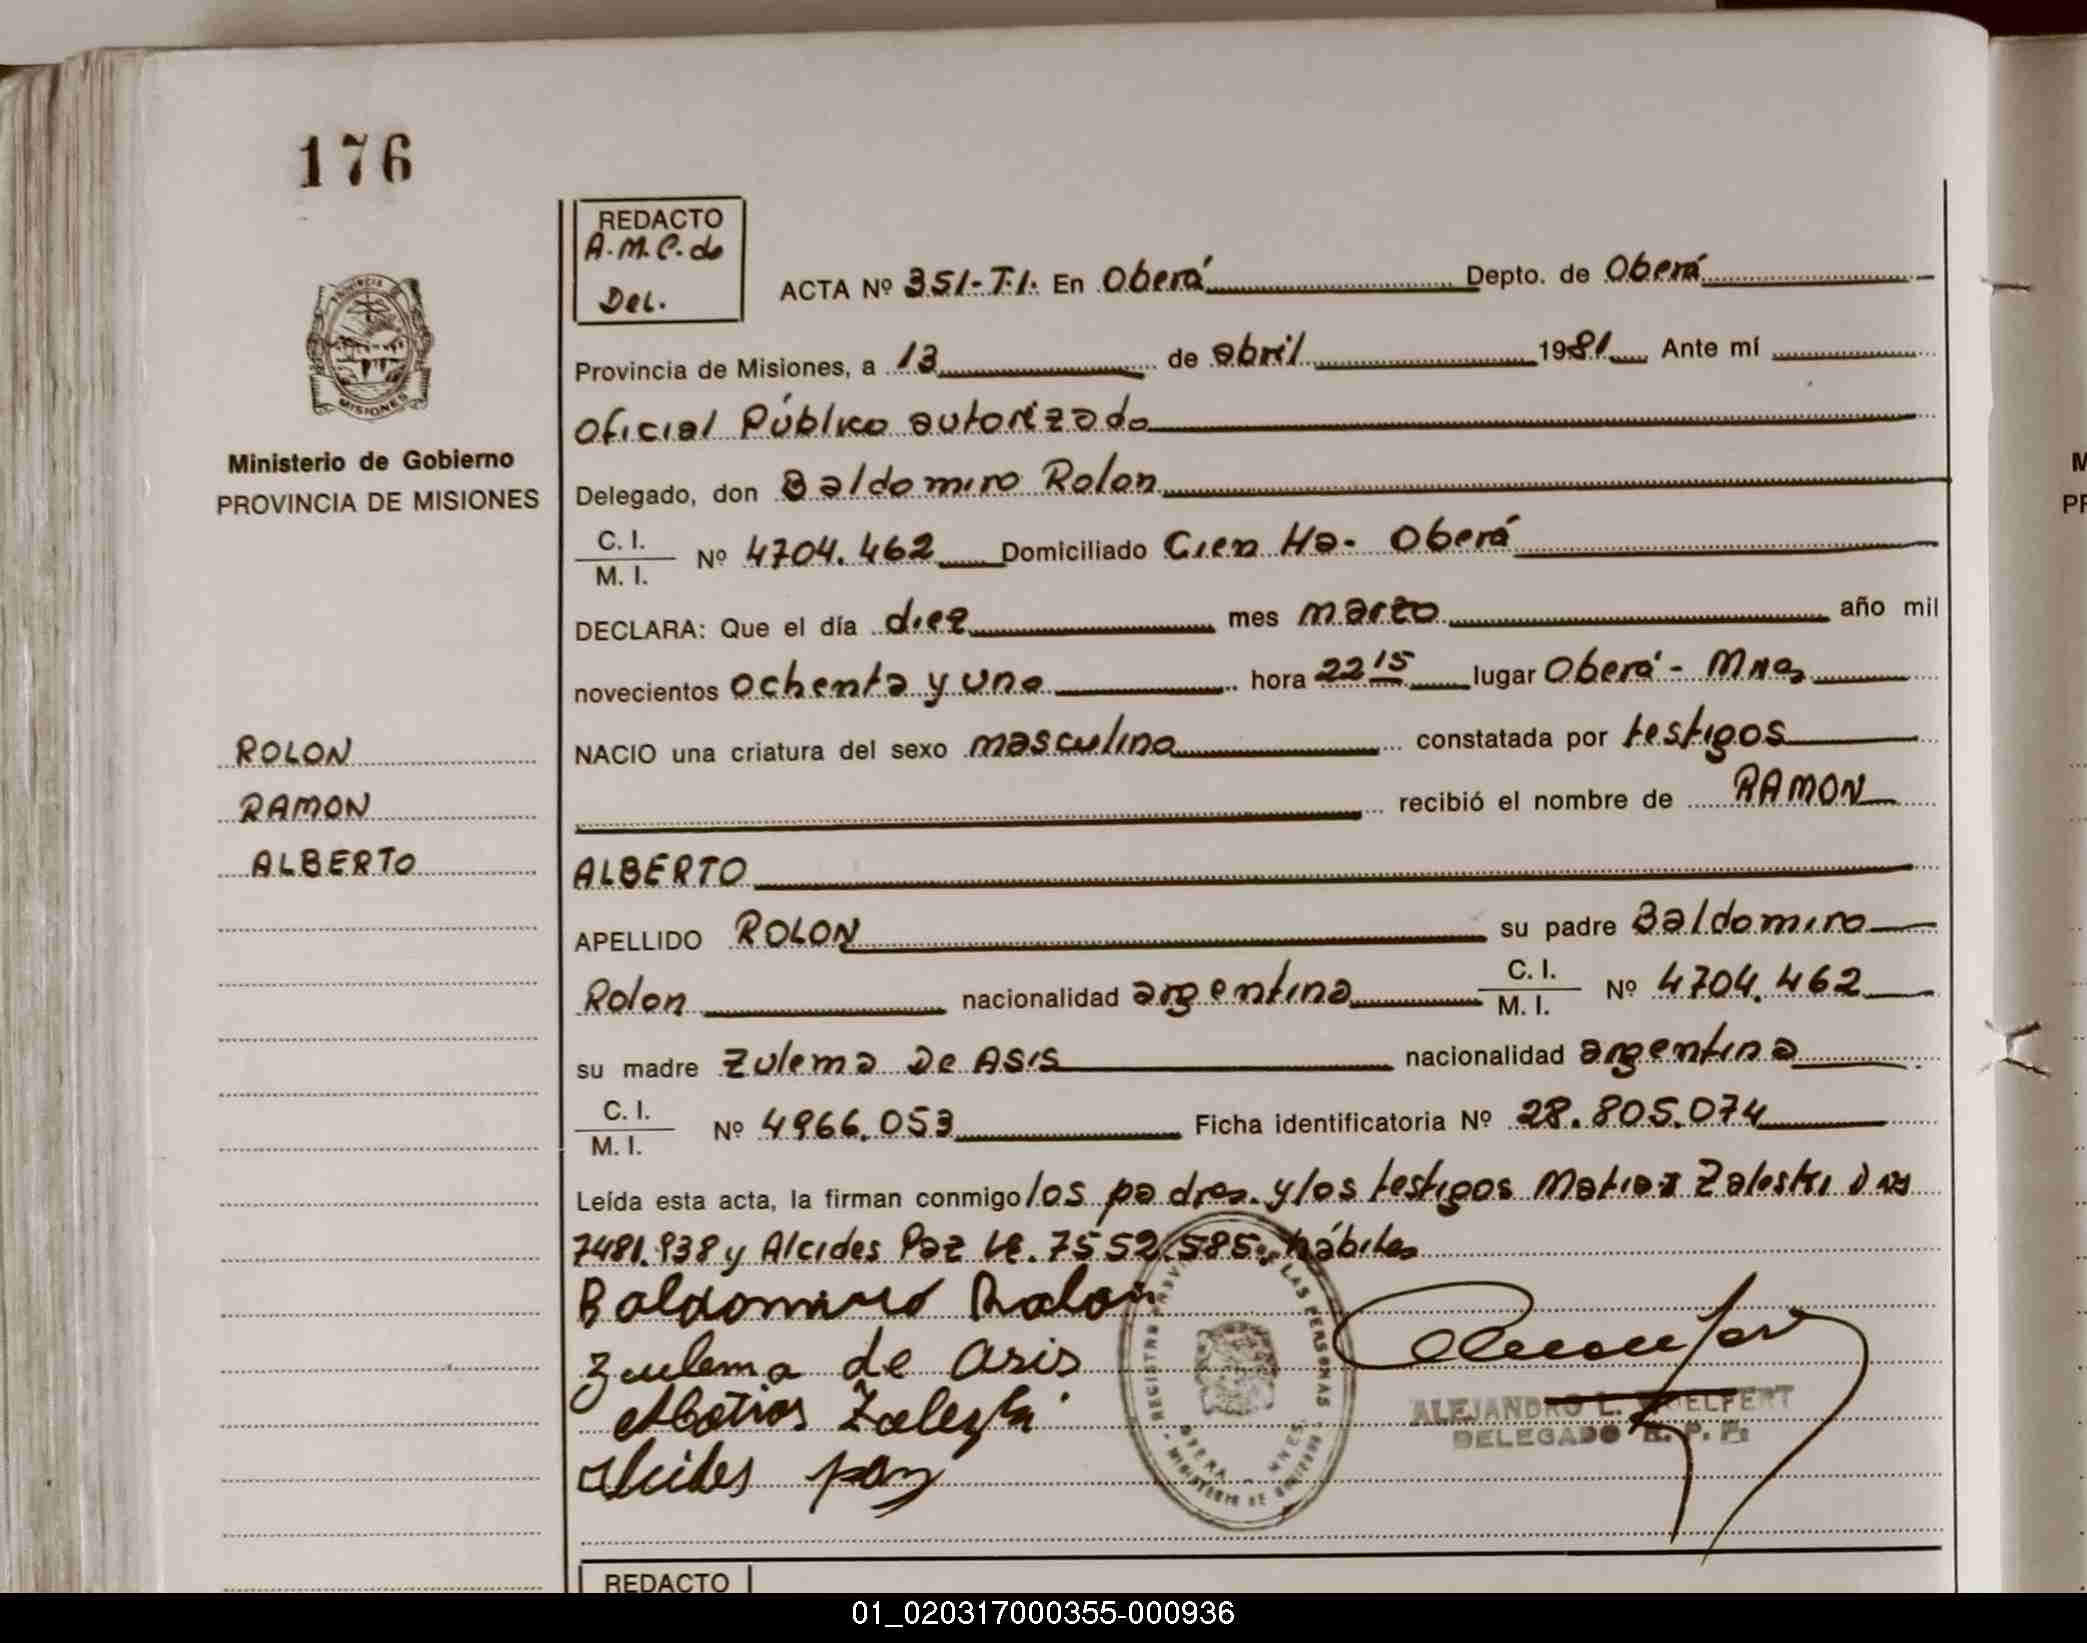 176
REDACTO
A.M.C. de
Del.
ACTA Nº 351-T.I. En Oberá Depto. de Oberá
Provincia de Misiones, a 13 de abril 1981 Ante mí
Oficial Público autorizado
Delegado, don Baldomiro Rolon
C. I.
M. I. Nº 4704.462 Domiciliado Cien Ha- Oberá
DECLARA: Que el día diez mes marzo año mil
novecientos ochenta y uno hora 22 15 lugar Oberá - Mnes
NACIO una criatura del sexo masculino constatada por testigos
recibió el nombre de RAMON
ALBERTO
APELLIDO ROLON su padre Baldomiro
Rolon nacionalidad argentina C. I. M. I. Nº 4704.462
su madre Zulema De ASIS nacionalidad argentina
C. I.
M. I. Nº 4966.053 Ficha identificatoria Nº 28.805.074
Leída esta acta, la firman conmigo los padres y los testigos Matias Zaleski
7481.938 y Alcides Paz LE. 7552.585. hábiles
Baldomiro Rolon
Zulema de Asis
Matias Zaleski
Alcides paz
PROVINCIA
MISIONES
Ministerio de Gobierno
PROVINCIA DE MISIONES
ROLON
RAMON
ALBERTO
REGISTRO PROV DE LAS PERSONAS
OBERA - MNES.
MINISTERIO DE GOBIERNO
ALEJANDRO L. ELFERT
DELEGADO R. P. P.
REDACTO
M
PR
01_020317000355-000936